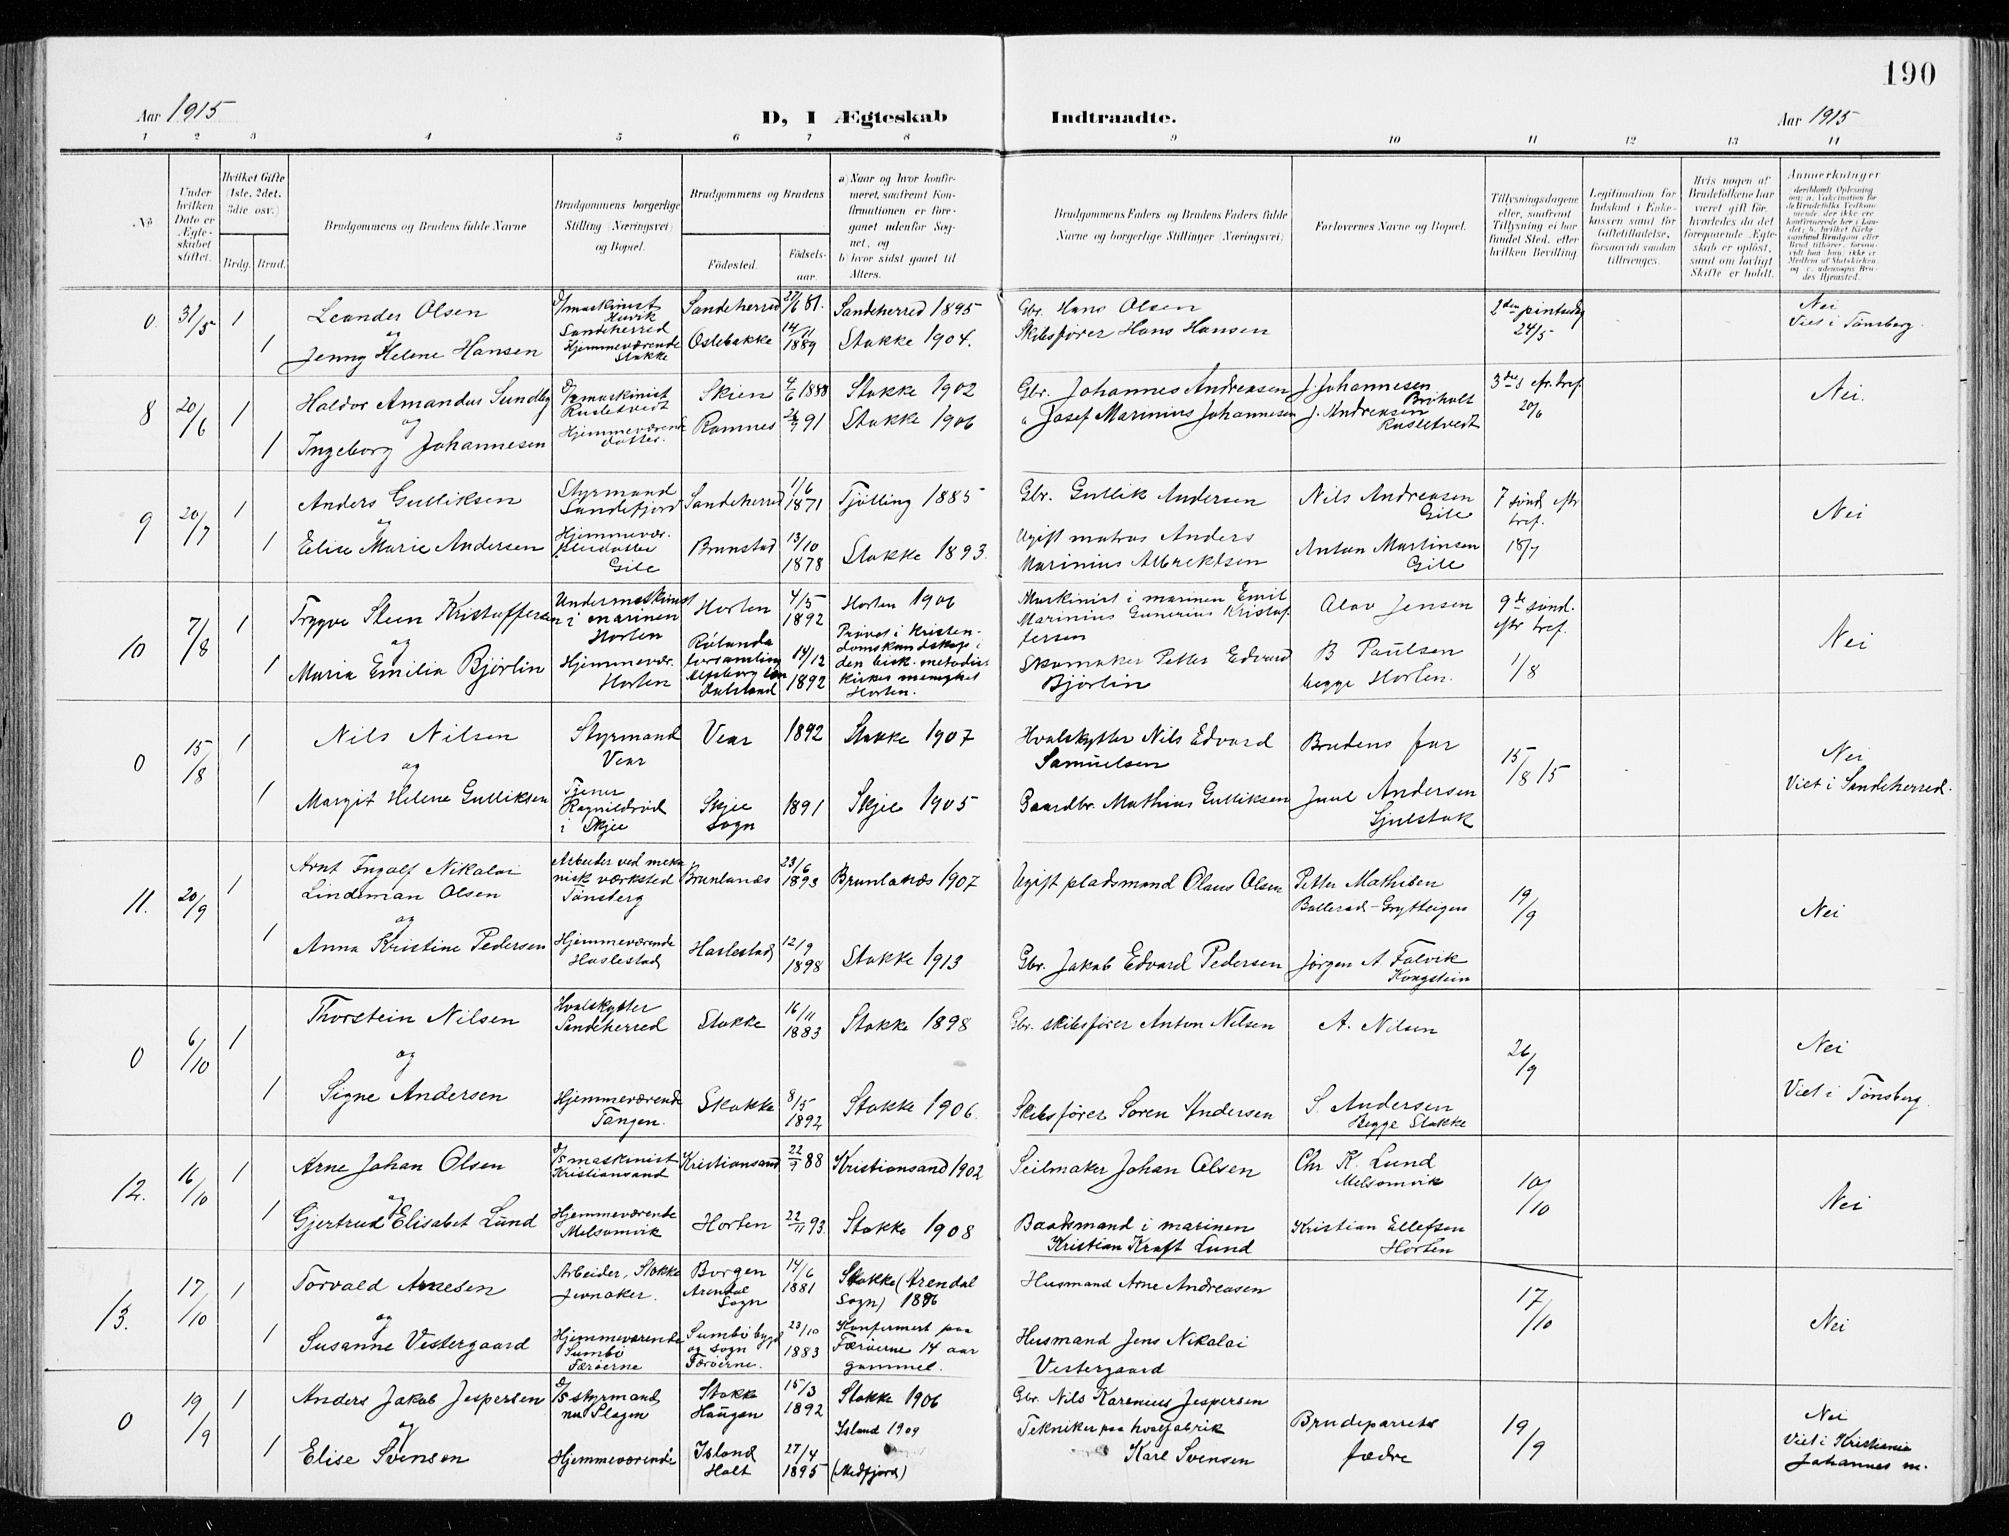 190
Aar 1915
D, I Ægteskab Indtraadte.
Aar 1915
1 2 3 4 5 6 7 8 9 10 11 12 13 14
No
Under hvilken Dato er Ægteskabet stiftet.
Hvilket Gifte (1ste, 2det, 3die osv.)
Brdg. Brud.
Brudgommens og Brudens fulde Navne
Brudgommens borgerlige Stilling (Næringsvei) og Bopæl.
Brudgommens og Brudens
Fødested.
Fødselsaar.
a) Naar og hvor konfirmeret, saafremt Konfirmationen er foregaaet udenfor Sognet, og
b) hvor sidst gaaet til Alters.
Brudgommens Faders og Brudens Faders fulde Navne og borgerlige Stillinger (Næringsvei)
Forlovernes Navne og Bopæl.
Tillysningsdagene eller, saafremt Tillysning ei har fundet Sted, efter hvilken Bevilling.
Legitimation for Indskud i Enkekassen samt for Giftetilladelse, forsaavidt saadan tiltrænges.
Hvis nogen af Brudefolkene har været gift før, hvorledes da det foregaaende Ægteskab er opløst, samt om lovligt Skifte er holdt.
Anmerkninger
0. 31/5 1 Leander Olsen d/maskinist Huvik Sandeherred Sandeherred 27/6 81. Sandeherred 1895 Gbr. Hans Olsen 2den pintsedag 24/5 Nei Viet i Tønsberg.
og
1 Jenny Helene Hansen Hjemmeværende Stokke Oslebakke 14/11 1889 Stokke 1904. Skibsfører Hans Hansen
8 20/6 1 Haldor Amandus Sundby d/s maskinist Rusletvedt Skien 4/6 1888 Stokke 1902 Gbr. Johannes Andreasen J. Johannesen Briholt 20/6 Nei.
og
1 Ingeborg Johannesen Hjemmeværende datter. Ramnes 91 Stokke 1906 " Josef Marinius Johannesen J. Andreasen Rusletvedt
9 20/7 1 Anders Gulliksen Styrmand Sandefjord Sandeherred 1/6 1871 Tjølling 1885 Gbr. Gullik Andersen Nils Andreasen Gile 7 sønd. eftr tref. 18/7 Nei
og
1 Elise Marie Andersen Hjemmevær. Gile Brunstad 13/10 1878 Stokke 1893. Ugift matros Anders Marinius Albrektsen Anton Martinsen Gile
10 7/8 1 Trygve Steen Kristoffersen Undermaskinist i marinen Horten Horten 4/5 1892 Horten 1906 Maskinist i marinen Emil Marinius Gunerius Kristoffersen Olav Jensen 9de sønd. eftr tref. 1/8 Nei
og
1 Maria Emilia Bjørlin Hjemmevær. Horten Rölanda forsamling Elfsborg län Dalsland 14/12 1892 Prøvet i Kristendomskundskap i den bisk. metodist kirkes menighet Horten. Skomaker Petter Edvard Bjørlin B Paulsen begge Horten.
0 15/8 1 Nils Nilsen Styrmand Vear Vear 1892 Stokke 1907 Hvalskytter Nils Edvard Samuelsen Brudens far 15/8 15 Nei
og
1 Margit Helene Gulliksen Tjener Ragnildrød i Skjee Skjee sogn 1891 Skjee 1905 Gaardbr. Mathius Gulliksen Juul Andersen Gjulstok Viet i Sandeherred.
11. 20/9 1 Arnt Ingolf Nikolai Lindeman Olsen Arbeider ved mekanisk værksted Tønsberg Brunlanes 23/6 1893 Brunlanæs 1907 Ugift pladsmand Olaus Olsen Petter Mathisen 19/9 Nei
og
1 Anna Kristine Pedersen Hjemmeværende Haslestad Haslestad 12/9 1898 Stokke 1913 Gbr. Jakob Edvard Pedersen Jørgen A. Falvik Kongstein
0 6/10 1 Thorstein Nilsen Hvalskytter Sandeherred Stokke 16/11 1883 Stokke 1898 Gbr. skibsfører Anton Nilsen A. Nilsen 26/9 Nei
og
1 Signe Andersen Hjemmeværende Tangen. Stokke 8/5 1892 Stokke 1906. Skibsfører Soren Andersen S. Andersen Begge Stokke Viet i Tønsberg.
12. 16/10 1 Arne Johan Olsen d/s maskinist Kristiansand Kristiansand 22/9 88 Kristiansand 1902 Seilmaker Johan Olsen Chr K. Lund Melsomvik 10/10 Nei
og
1 Gjertrud Elisabet Lund Hjemmeværende Melsomvik Horten 22/11 93. Stokke 1908 Baadsmand i marinen Kristian Kraft Lund Kristian Ellefsen Horten
13. 17/10 1 Torvald Arnesen Arbeider, Stokke Jernaker. Borgen Arendal Sogn 14/6 1881 Stokke (Arendal Sogn) 1896 Husmand Arne Andreasen 17/10 Nei
og
1 Susanne Vestergaard Hjemmeværende Sumbø Færøerne Sumbø bygd og sogn Færøerne. 23/10 1883 Konfirmert paa Færøerne 14 aar gammel. Husmand Jens Nikolai Vestergaard
0 19/9 1 Anders Jakob Jespersen d/s styrmand nu Slagen Stokke Haugen 15/3 1892 Stokke 1906 Gbr. Nils Karenius Jespersen Brudeparrets fædre 19/9 Nei
og
1 Elise Svensen Hjemmeværende Island Holt 27/4 1895 Island 1909 (Medfjord) Tekniker paa hvalfabrik Karl Svensen Viet i Kristiania Johannes m.